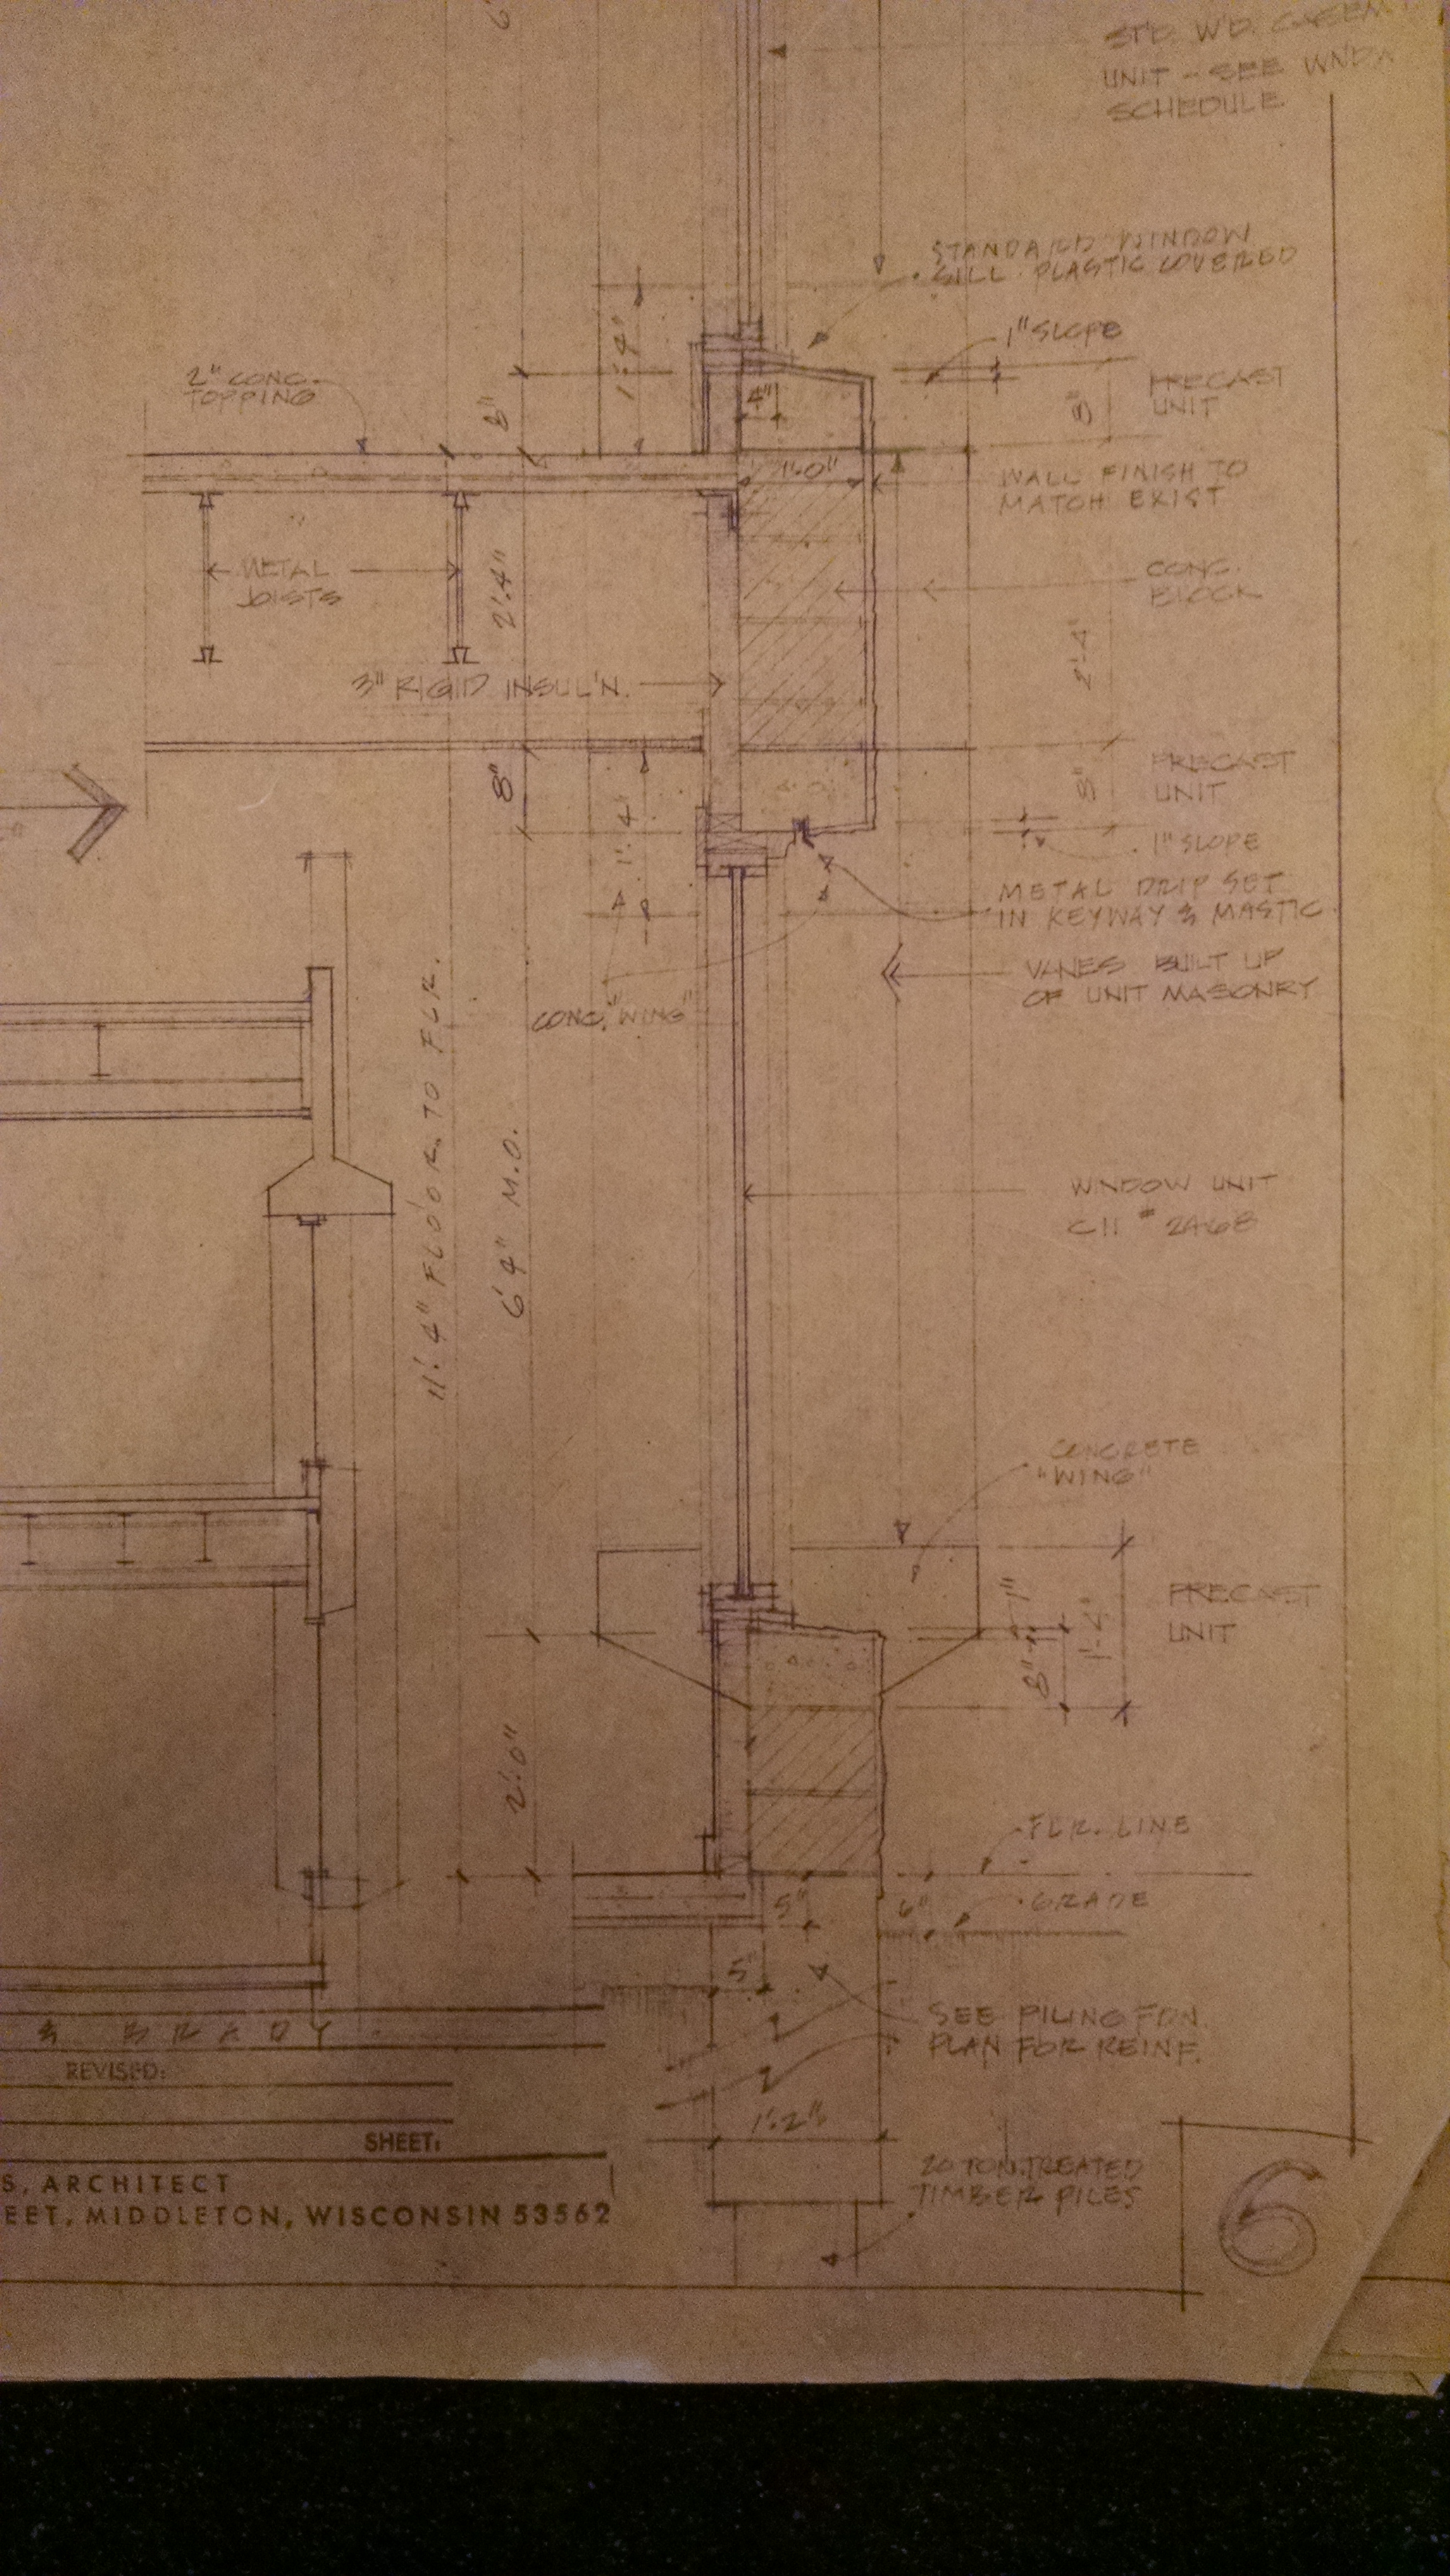 STD. WD.
UNIT - SEE WNDW
SCHEDULE
STANDARD WINDOW
SILL PLASTIC COVERED
1" SLOPE
1'-4"
2" CONC.
TOPPING
8"
4"
8"
PRECAST
UNIT
1'-0"
WALL FINISH TO
MATCH EXIST
METAL
JOISTS
2'-4"
CONC.
BLOCK
2'-4"
3" RIGID INSUL'N.
8"
1'-4"
8"
PRECAST
UNIT
1" SLOPE
METAL DRIP SET
IN KEYWAY & MASTIC
VANES BUILT UP
OF UNIT MASONRY
CONC. "WING"
11'-4" FLOOR TO FLR.
6'4" M.O.
WINDOW UNIT
C11 # 2468
CONCRETE
"WING"
1"
8"
1'-4"
PRECAST
UNIT
2'-0"
FLR. LINE
5"
6"
GRADE
5"
SEE PILING FDN.
PLAN FOR REINF.
1'-2"
20 TON TREATED
TIMBER PILES
& BRADY
REVISED:
SHEET:
S, ARCHITECT
EET, MIDDLETON, WISCONSIN 53562
6